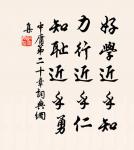 好學近乎知
力行近乎仁
知恥近乎勇
中庸第二十章詞典網
集